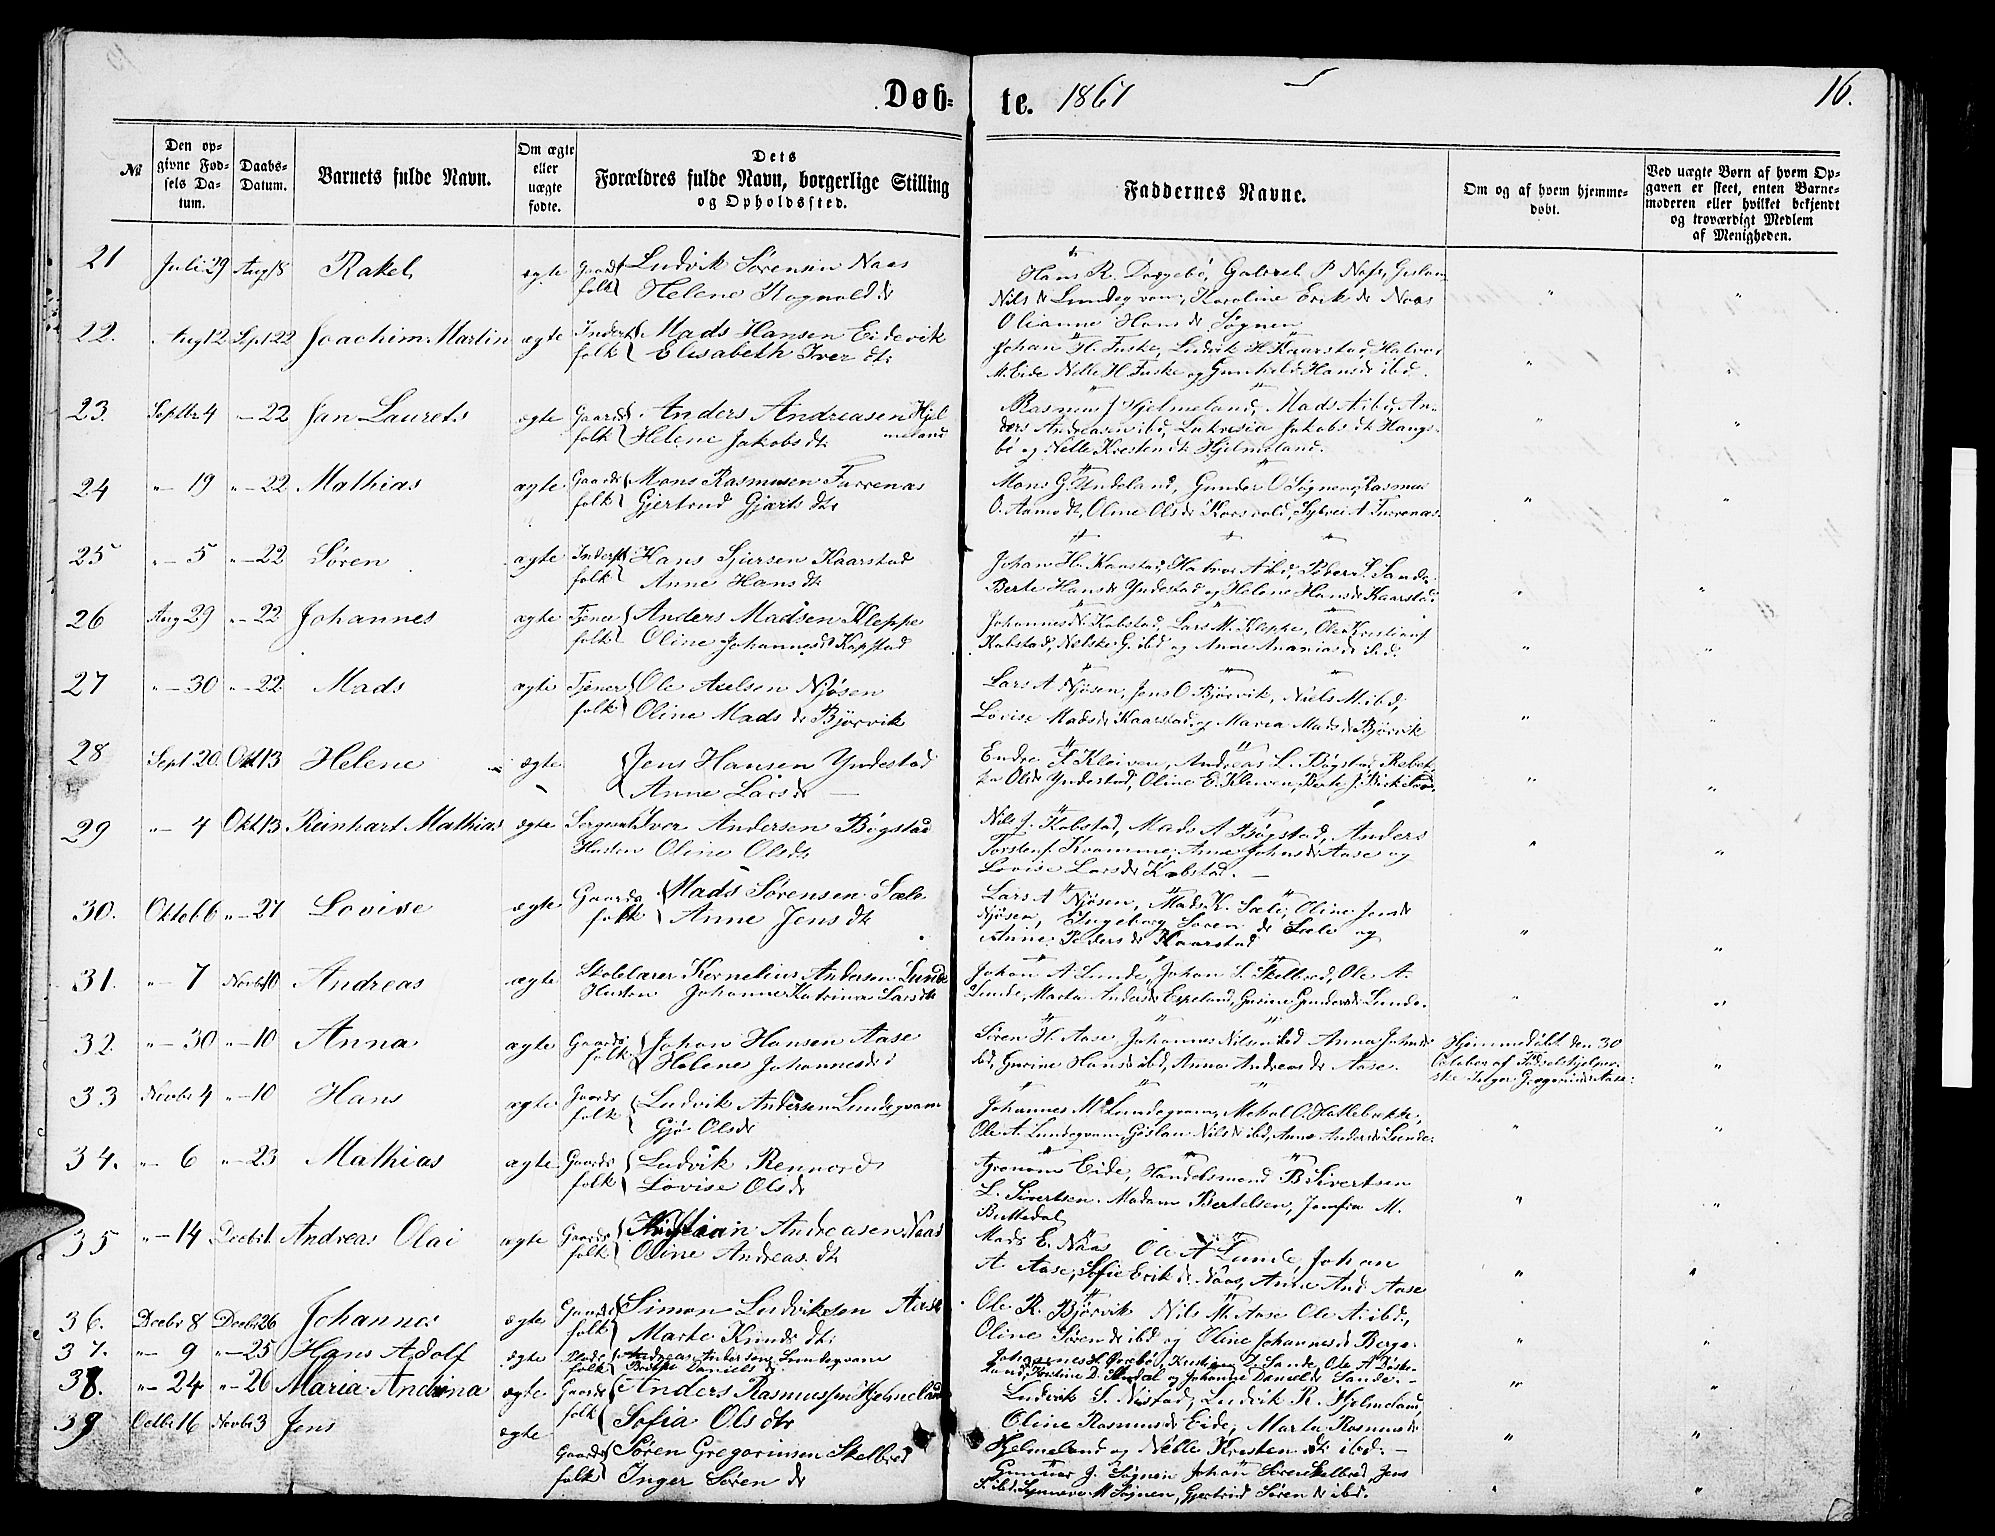 Døb-
te. 1861
16.
№
Den op-
givne Fød-
sels Da-
tum.
Daabs-
Datum.
Barnets fulde Navn.
Om ægte
eller
uægte
fødte.
Dets
Forældres fulde Navn, borgerlige Stilling
og Opholdssted.
Faddernes Navne.
Om og af hvem hjemme-
døbt.
Ved uægte Børn af hvem Op-
gaven er skeet, enten Barne-
moderen eller hvilket bekjendt
og troværdigt Medlem
af Menigheden.
21 Juli 29 Aug 18 Rakel ægte Gaard Ludvik Sørensen Naas
folk Helene Ragnald dr
Nils dr Lundegvam, Karoline Erik dr Naas
Olianne Hans dr Søgnen
22. Aug 12 Sept 22 Joachim Martin ægte Inderst Mads Hansen Eidevik
folk Elisabeth Iver dtr
Johan H. Fuske, Ludvik H Kaarstad, Halvor
M. Eide Nille H Fuske og Gunhild Hans dr ibd.
23. Septbr 4 - 22 Jan Laurets ægte Gaards Anders Andreasen Hjel
folk Helene Jakobs dtr meland
Rasmus J Hjelmeland, Mads A ibd, An-
ders Andreasen ibd, Lukresia Jakobs dtr Haugs-
bö og Nille Kristen dtr Hjelmeland.
24 " - 19 " - 22 Mathias ægte Gaards Mons Rasmusen Farrenas
folk Gjertrud Gjærts dtr
Mons G. Undeland, Gunder O Søgnen, Rasmus
O. Aamodt, Oline Ols dr
25 " - 5 " - 22 Søren ægte Inderst Hans Sjursen Kaarstad
folk Anne Hans dtr
Johan H. Kaarstad, Halvor A ibd, Peder S. Sande
Berte Hans dr Yndestad og Helene Hans dr Kaarstad.
26 Aug 29 " - 22 Johannes ægte Tjener Anders Madsen Kleppe
folk Oline Johannes dr Kopstad
Johannes N. Kobstad, Lars M. Kleppe, Ole Kristians
Kobstad, Nilske G. ibd og Anne Ananias dr ibd.
27 " - 30 " - 22 Mads ægte Tjener Ole Axelsen Njøsen
folk Oline Mads dr Bjørvik
Lars A Njøsen, Jens O Bjørvik, Niels M. ibd,
Lovise Mads dr Kaarstad og Maria Mads dr Bjørvik
28 Sept 20. Okt 13 Helene ægte Jens Hansen Yndestad
Anne Lars dr
Endre S Kleiven, Andreas L. Bøgstad, Rebek-
ka Ols dr Yndestad, Oline E. Kleiven, Berte J.
29 " - 4 Okt 13 Reinhart Mathias ægte Sergeant Iver Andersen Bøgstad
Hustru Oline Ols dtr
Nils J. Kobstad, Mads A Bøgstad, Anders
Torstens Kvamme, Anne Johns dr Aase og
Lovise Lars dr Kobstad.
30. Oktob 6 " - 27 Lovise ægte Gaards Mads Sørensen Sæle
folk Anne Jens dtr
Lars A Njøsen, Mads K. Sæle, Oline Jens dr
Njøsen, Ingeborg Søren dr Sæle og
Anne Peders dr Kaarstad
31. " - 7 Novbr 10 Andreas ægte Skolelærer Kornelius Andersen Lunde
Hustru Johanne Katrine Lars dtr
Johan A Lunde, Johan S. Skelbred, Ole A.
Lunde, Marta Anders dr Espeland, Gurine Gunders dr Lunde.
32. " - 30 " - 10 Anna ægte Gaards Johan Hansen Aase
folk Helene Johannes dr
Søren H. Aase, Johannes Nilsen ibd Anna Johns dr
ibd, Gurine Hans dr ibd, Anna Andreas dr Aase.
Hjemmedøbt den 30
October af Fødselshjelper-
ske Inger Gregorius dr Aase.
33 Novbr 4 " - 10 Hans ægte Gaards Ludvik Andersen Lundegvam
folk Gjø. Ols dr
Johannes M. Lundegvam, Mikal O. Hatlebakke,
Ole A. Lundegvam, Gislau Nils dr ibd, Anne Anders dr Lunde.
34. " - 6 " - 23 Mathias ægte Gaards Ludvik
folk Lovise Ols dr
Agronom Eide, Handelsmand B Sivertsen
L. Sivertsen. Madam Bertelsen, M.
35 " - 14 Decbr 1. Andreas Olai ægte Gaards Kristian Andreasen Naas
folk Oline Andreas dtr
Mads E. Naas Ole A Lunde, Johan
A. Aase, Sofie Erik dr Naas, Anne And. Aase
36. Decbr 8 Decbr 26 Johannes ægte Gaards Simon Ludviksen Aase
folk Marte Knuds dtr
Ole R. Bjørvik Nils M. Aase Ole A. ibd,
Oline Søren dr ibd og Oline Johannes dr Berge.
37. " - 9 " - 25 Hans Adolf ægte Andreas Andersen Lundegvam
folk Daniels dr
38. " - 24 " - 26 Maria Andrina ægte Gaards Anders Rasmussen Hjelmeland
folk Sofia Ols dtr
Ludvik S. Nistad, Ludvik R. Hjelmeland,
Oline Rasmus dr Eide, Marta Rasmus dr
Hjelmeland og Nille Kristen dtr ibd.
39 Octbr 16 Novbr 3 Jens ægte
Gaards Søren Gregoriusen Skelbred
folk Inger Søren dr
Gunnar J. Søgnen Johan Søren Skelbred, Jens
S. ibd. Synneve M Søgnen, Gjertrud Søren dr ibd.